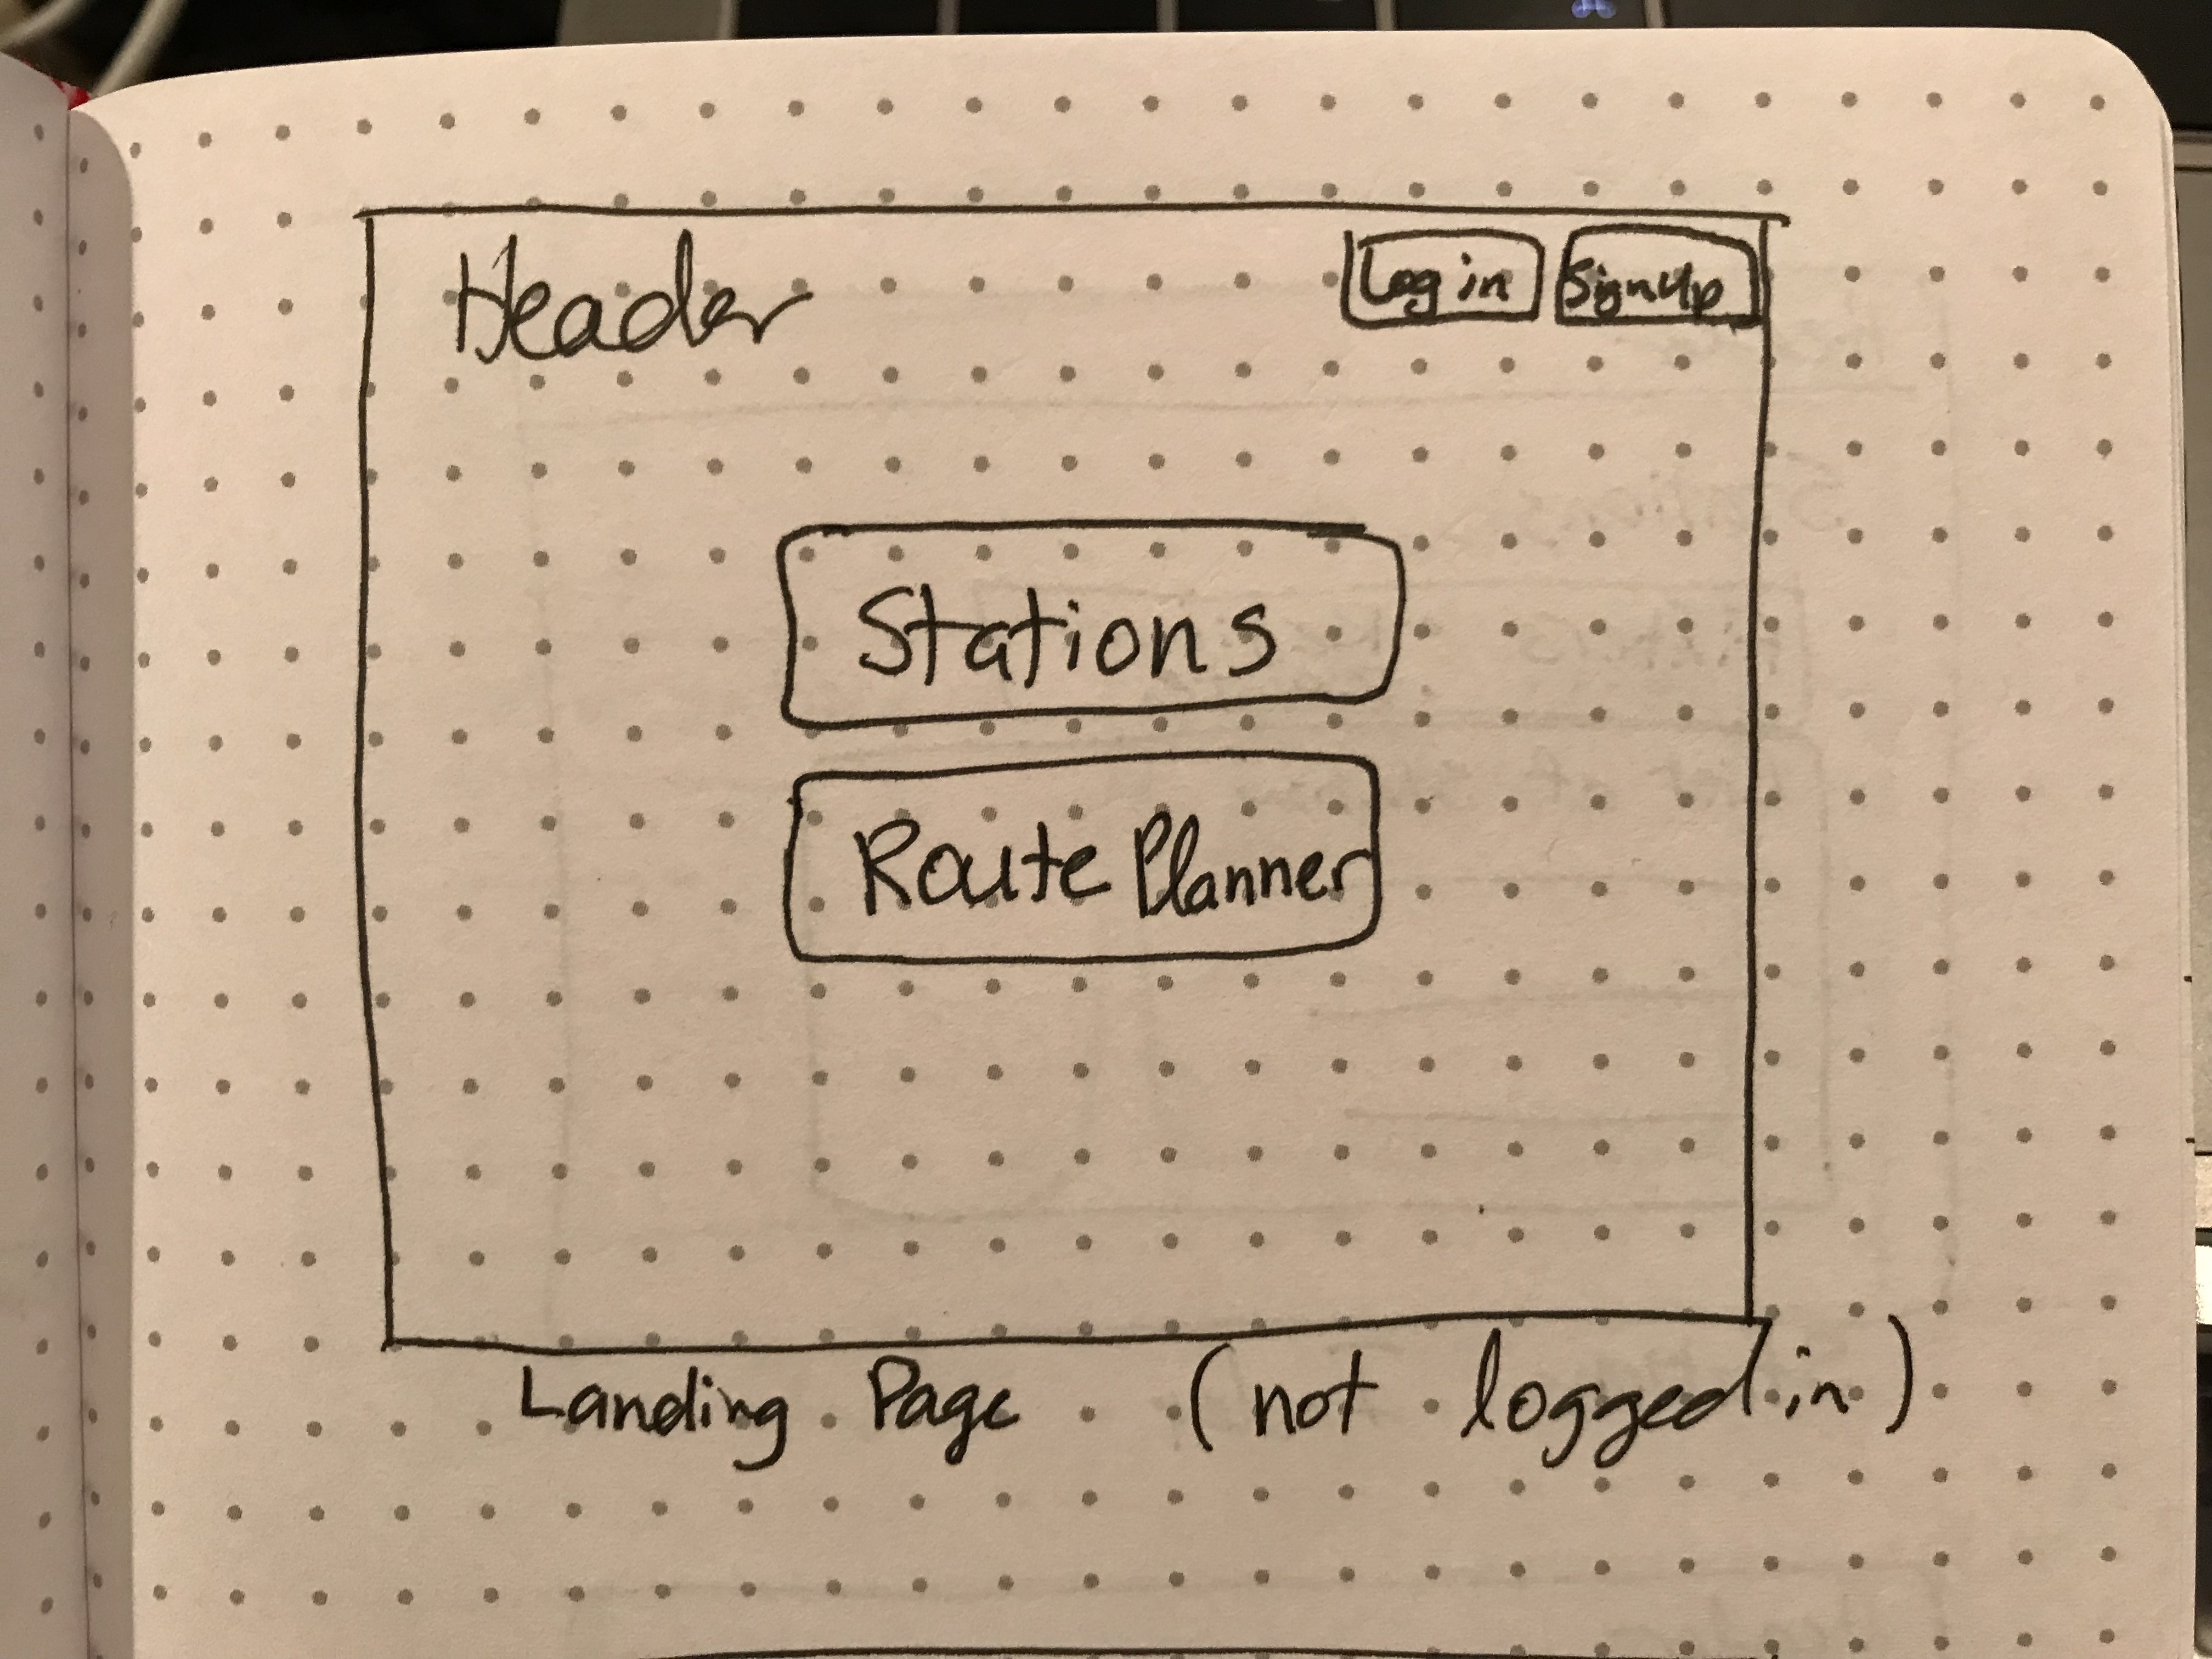 Header Log in SignUp
Stations
Route Planner
Landing Page (not logged in)